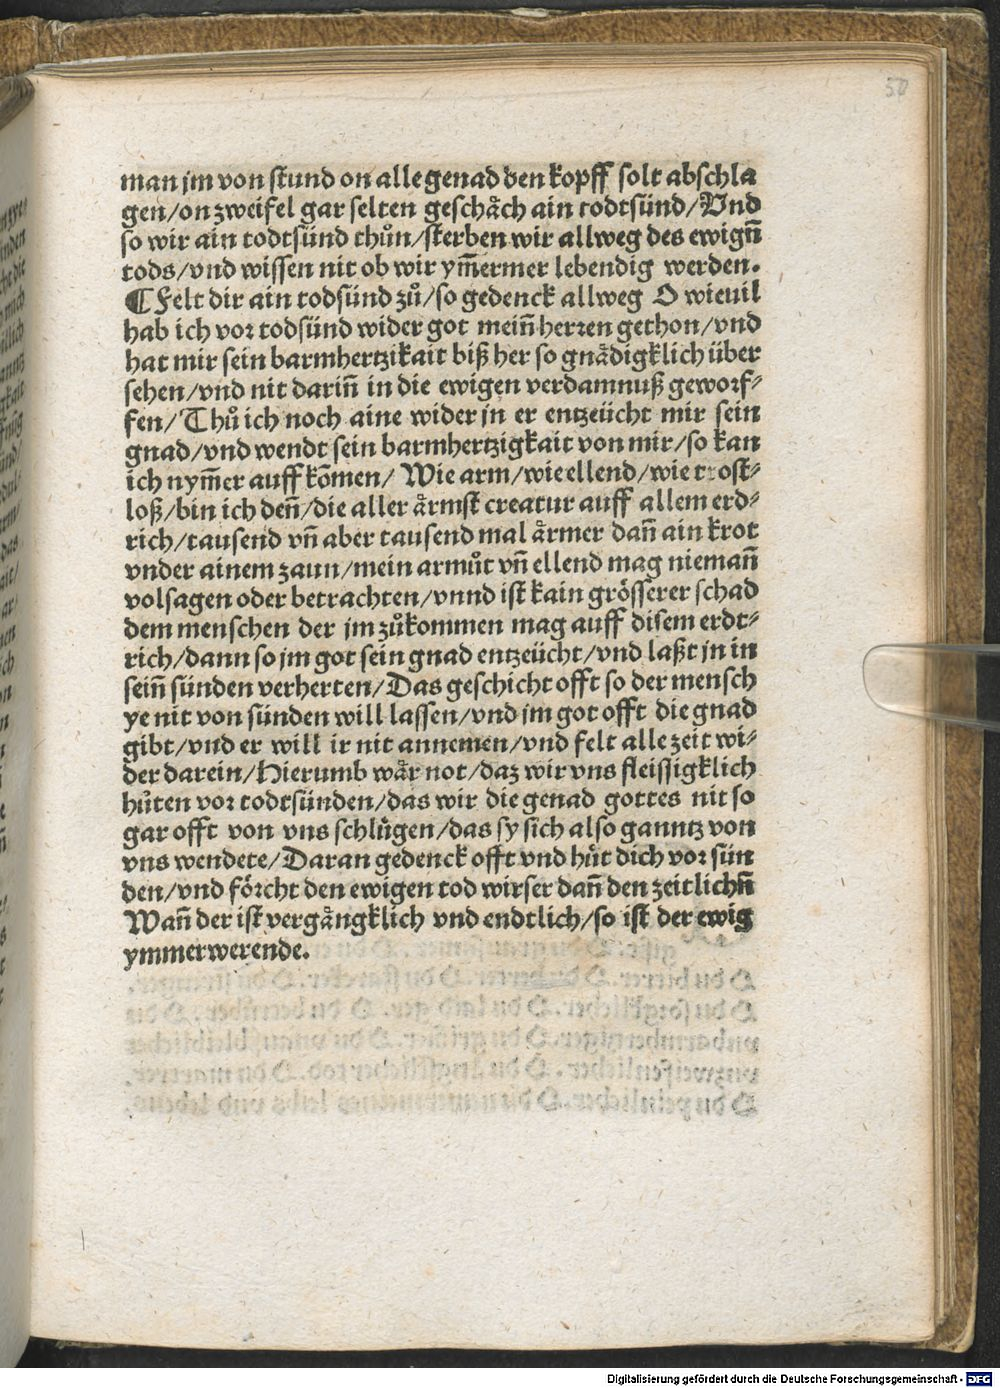 50
man jm von stund on alle genad den kopff solt abschla
gen/on zweifel gar selten geschåch ain todtsünd/Vnd
so wir ain todtsünd thůn/sterben wir allweg des ewign̄
tods/vnd wissen nit ob wir ym̄ermer lebendig werden.
¶Felt dir ain todsünd zů/so gedenck allweg O wieuil
hab ich vor todsünd wider got mein̄ herren gethon/vnd
hat mir sein barmhertzikait biß her so gnådigklich über
sehen/vnd nit darin̄ in die ewigen verdamnuß geworf⸗
fen/Thů ich noch aine wider jn er entzeücht mir sein
gnad/vnd wendt sein barmhertzigkait von mir/so kan
ich nym̄er auff kōmen/ Wie arm/wie ellend/wie trost⸗
loß/bin ich den̄/die aller årmst creatur auff allem erd⸗
rich/tausend vn̄ aber tausend mal årmer dan̄ ain krot
vnder ainem zaun/mein armůt vn̄ ellend mag nieman̄
volsagen oder betrachten/vnnd ist kain grösserer schad
dem menschen der jm zůkommen mag auff disem erdt⸗
rich/dann so jm got sein gnad entzeücht/vnd laßt jn in
sein̄ sünden verherten/Das geschicht offt so der mensch
ye nit von sünden will lassen/vnd jm got offt die gnad
gibt/vnd er will ir nit annemen/vnd felt alle zeit wi⸗
der darein/Hierumb wår not/daz wir vns fleissigklich
hůten vor todtsünden/das wir die genad gottes nit so
gar offt von vns schlůgen/das sy sich also ganntz von
vns wendete/Daran gedenck offt vnd hůt dich vor sün
den/vnd förcht den ewigen tod wirser dan̄ den zeitlichn̄
Wan̄ der ist vergångklich vnd endtlich/so ist der ewig
ymmerwerende.
Digitalisierung gefördert durch die Deutsche Forschungsgemeinschaft - DFG